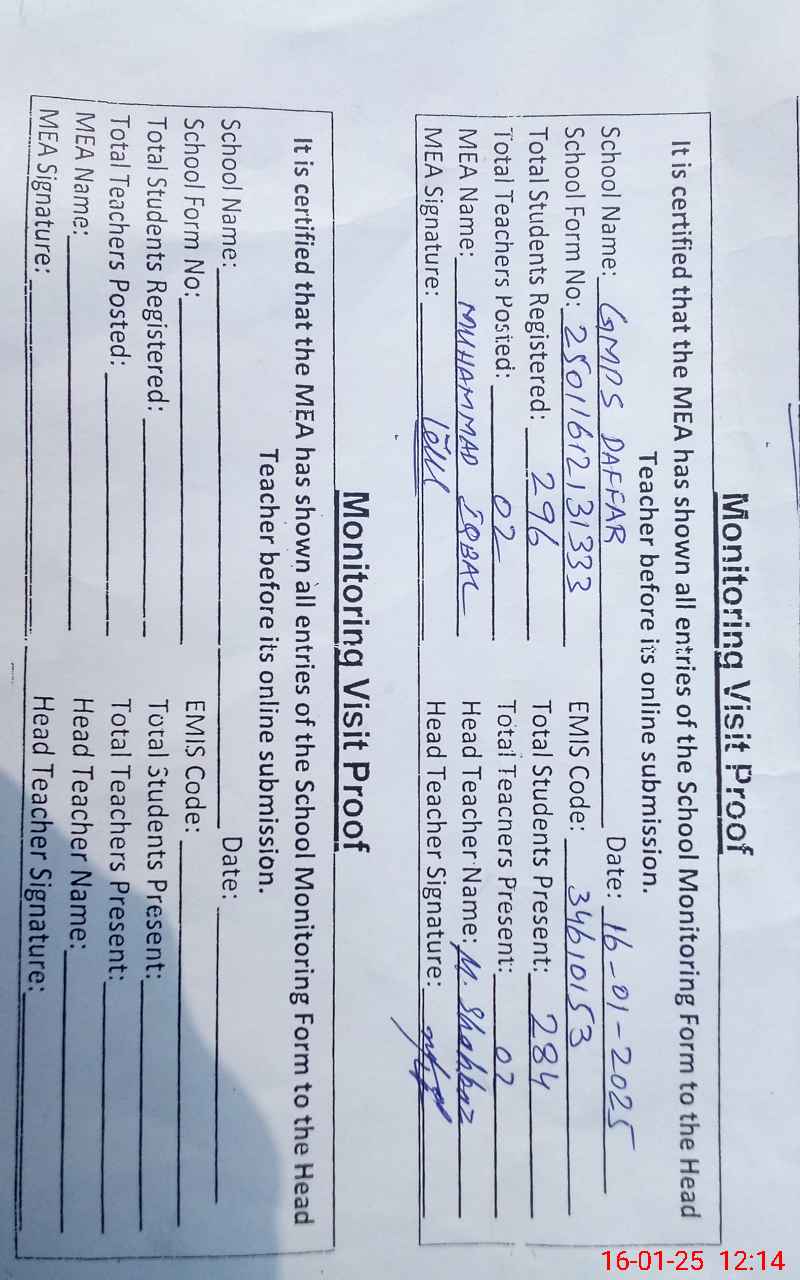 Monitoring Visit Proof
It is certified that the MEA has shown all entries of the School Monitoring Form to the Head
Teacher before its online submission.
School Name: GMPS DAFFAR Date: 16-01-2025
School Form No: 25011612131333 EMIS Code: 34610153
Total Students Registered: 296 Total Students Present: 284
Total Teachers Posted: 02 Total Teachers Present: 02
MEA Name: MUHAMMAD IQBAL Head Teacher Name: M. Shahbaz
MEA Signature: Head Teacher Signature:
Monitoring Visit Proof
It is certified that the MEA has shown all entries of the School Monitoring Form to the Head
Teacher before its online submission.
School Name: Date:
School Form No: EMIS Code:
Total Students Registered: Total Students Present:
Total Teachers Posted: Total Teachers Present:
MEA Name: Head Teacher Name:
MEA Signature: Head Teacher Signature:
16-01-25 12:14